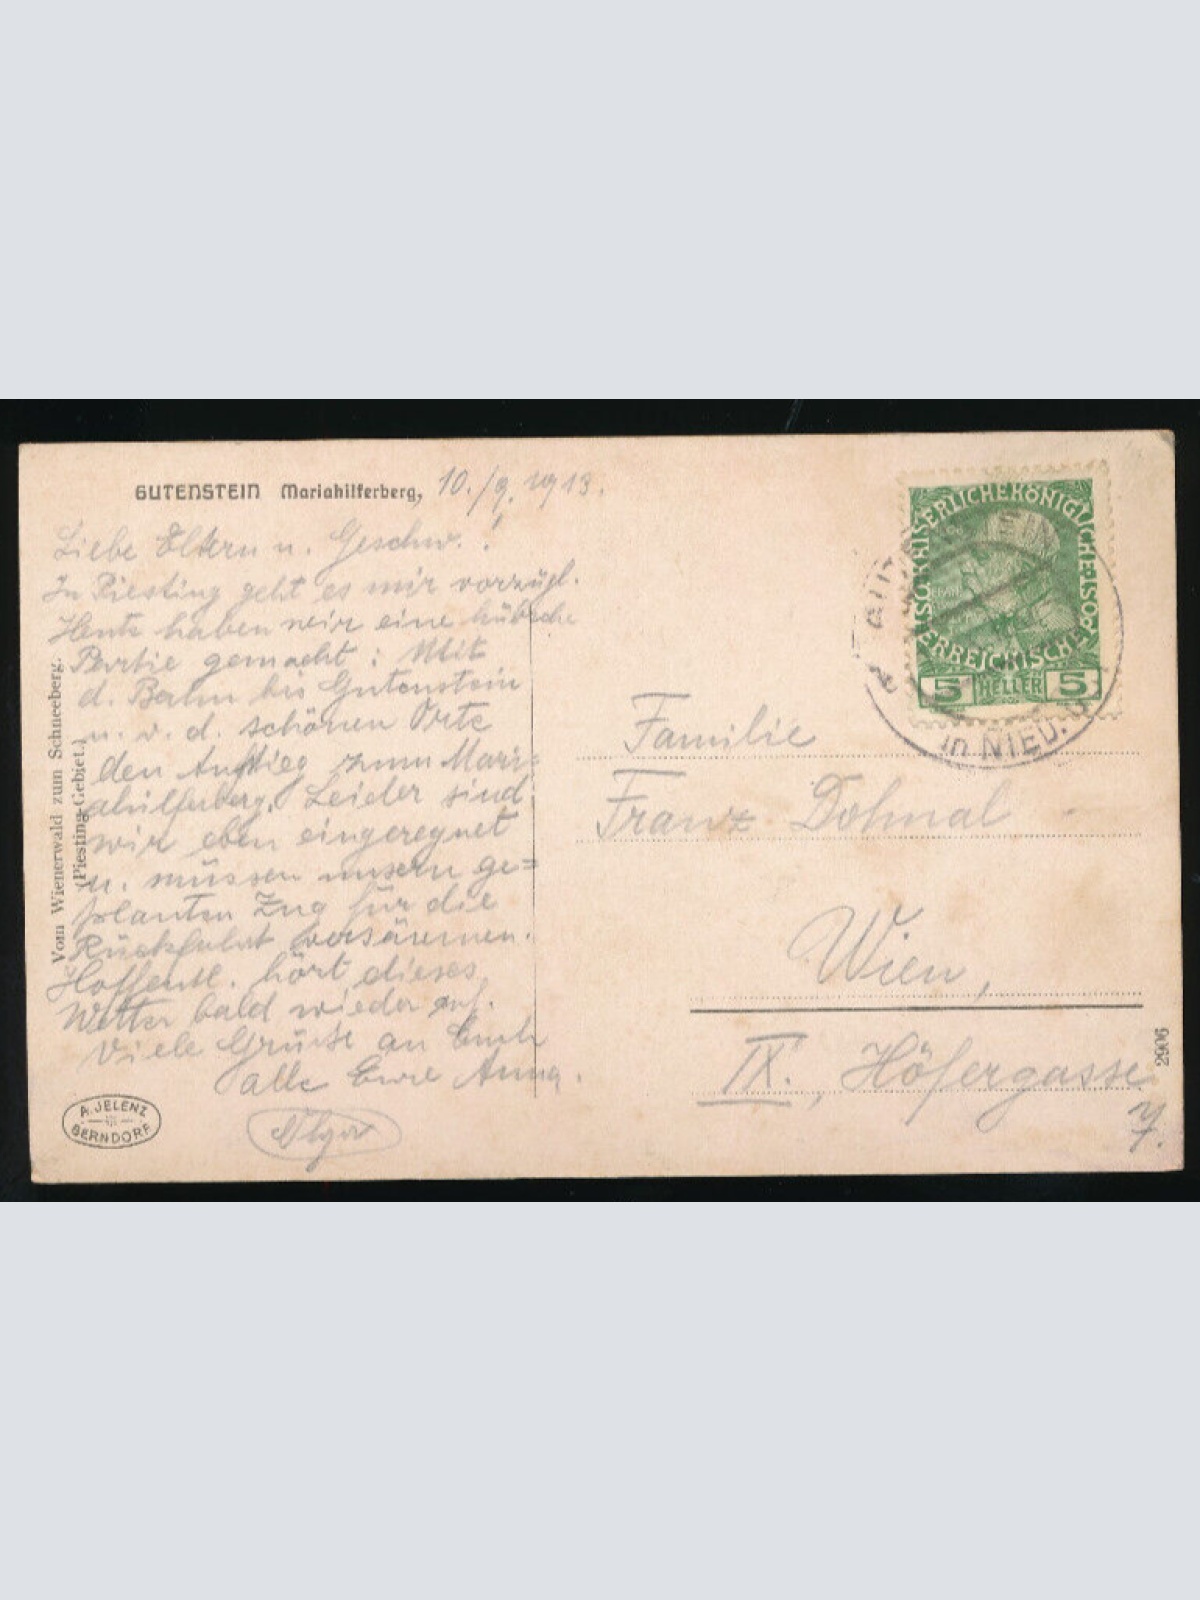 GUTENSTEIN Mariahilferberg, 10./9. 1913.
Liebe Eltern u. Geschw.!
In Piesting geht es mir vorzügl.
Heute haben wir eine hübsche
Partie gemacht: Mit
d. Bahn bis Gutenstein
u. v. d. schönen Orte
den Aufstieg zum Mari-
ahilferberg. Leider sind
wir eben eingeregnet
u. müssen unsern ge=
planten Zug für die
Rückfahrt versäumen.
Hoffentl. hört dieses
Wetter bald wieder auf.
Viele Grüße an Euch
alle Eure Anna.
Vom Wienerwald zum Schneeberg.
(Piesting-Gebiet.)
A. JELENZ
BERNDORF
KAISERLICHE KÖNIGLICHE ÖSTERREICHISCHE
5 HELLER 5
GUTENSTEIN
in NIED.
Familie
Franz Dohnal
Wien,
IX., Höfergasse
7.
2906